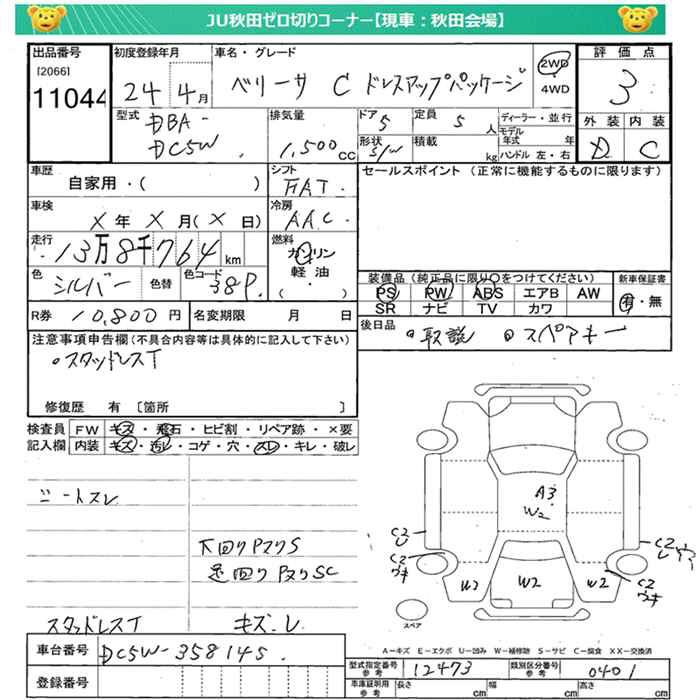 JU秋田ゼロ切りコーナー【現車：秋田会場】
出品番号 初度登録年月 車名・グレード 評価点
[2066]
11044 24 4月 ベリーサ C ドレスアップパッケージ 2WD 4WD 3
型式 DBA- DC5W 排気量 1,500cc ドア 5 定員 5人 ディーラー・並行 外装 内装
形状 S/W 積載 kg モデル年式 年 ハンドル 左・右 D C
車歴 自家用・( ) シフト FAT セールスポイント (正常に機能するものに限ります)
車検 X年X月(X日) 冷房 AAC
走行 13万8千764km 燃料 ガソリン 軽油 ( ・ )
色 シルバー 色替 色コード 38P 装備品 (純正品に限り○をつけてください) 新車保証書
PS PW ABS エアB AW 有・無
SR ナビ TV カワ
R券 10,800円 名変期限 月 日 後日品 ・取説 ・スペアキー
注意事項申告欄(不具合内容等は具体的に記入して下さい)
・スタッドレスT
修復歴 有 [箇所 ]
検査員記入欄 FW キズ・飛石・ヒビ割・リペア跡・×要
内装 キズ・汚レ・コゲ・穴・スレ・キレ・破レ
シートスレ
下回りPマリS
足回りPヌリSC
スタッドレスT キズ・レ
A3
W2
C2
U
C2
ウキ
C2
U
C2
ウキ
W2 W2 W2
スペア
A－キズ E－エクボ U－凹み W－補修跡 S－サビ C－腐食 XX－交換済
車台番号 DC5W-358145 型式指定番号 参考 12473 類別区分番号 参考 0401
登録番号 車庫証明用 参考 長さ cm 幅 cm 高さ cm